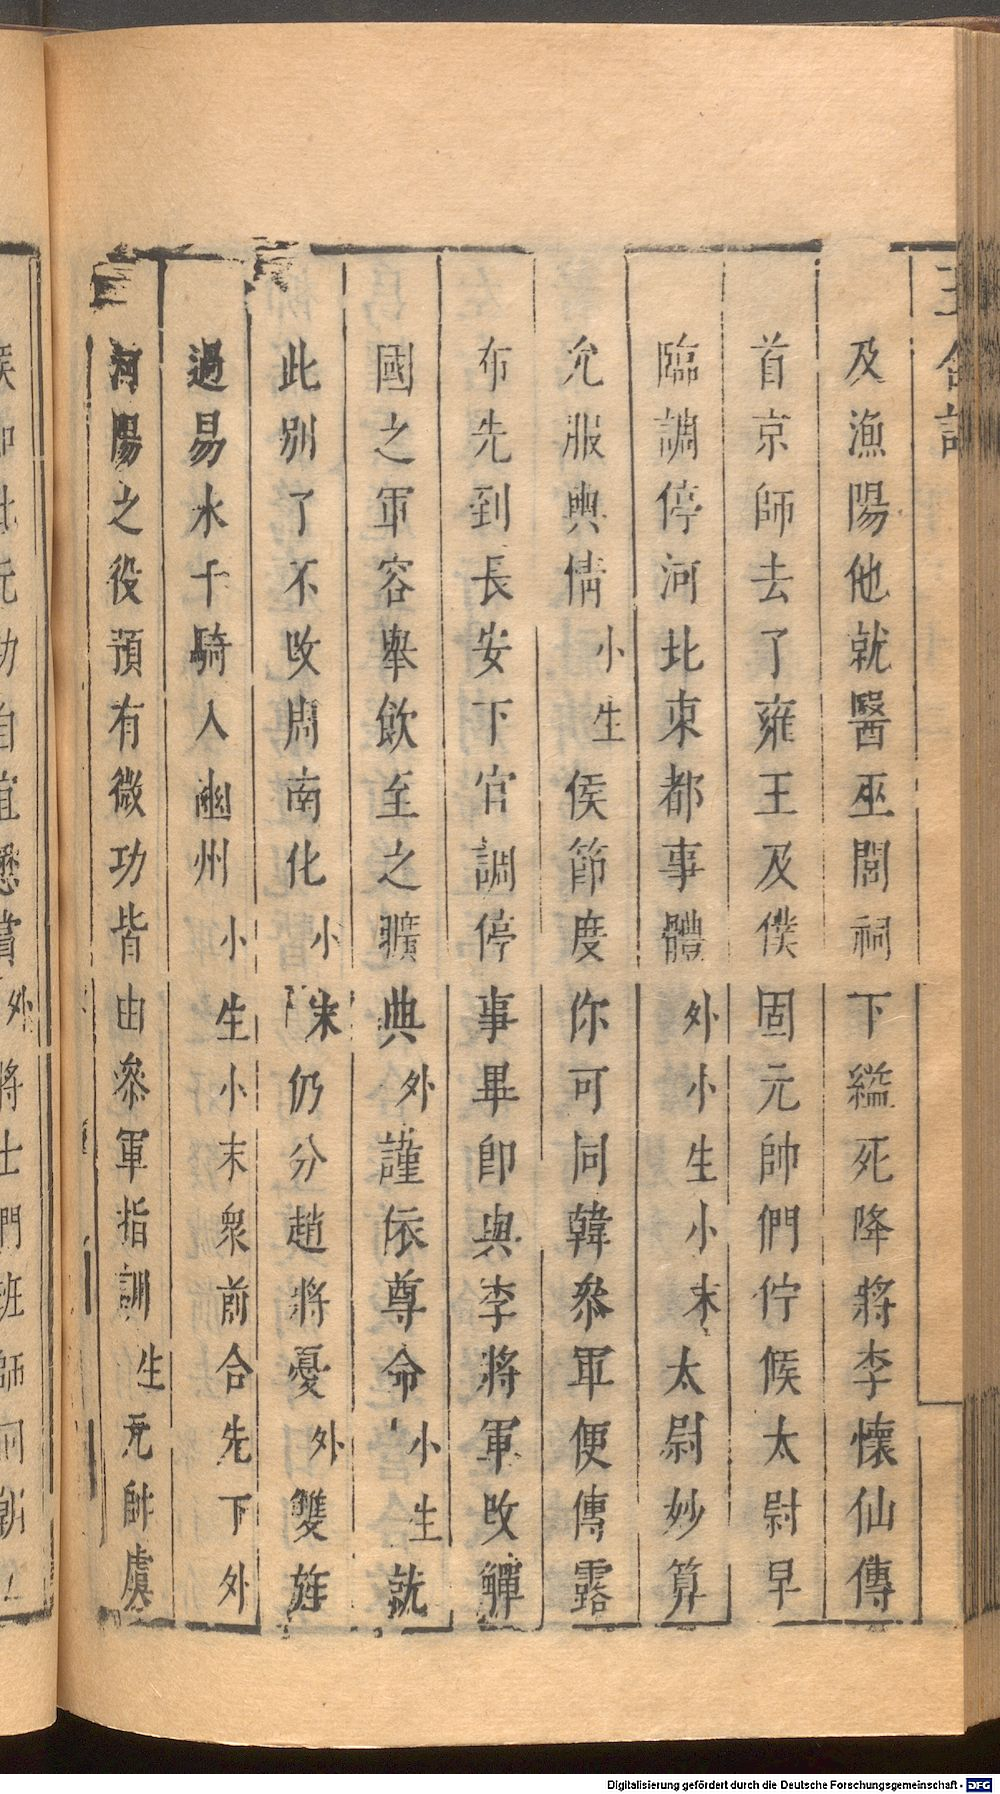 玉合記
及漁陽他就醫巫閭祠下縊死降將李懷仙傳
首京師去了雍王及僕固元帥們佇候太尉早
臨調停河北東都事體外小生小末太尉妙算
允服輿情小生侯節度你可同韓叅軍便傳露
布先到長安下官調停事畢卽與李將軍改觶
國之軍容舉飲至之曠典外謹依尊命小生就
此別了不改周南化小末仍分趙將憂外雙旌
過易水千騎入幽州小生小末衆前合先下外
河陽之役預有微功皆由叅軍指訓生元帥虞
Digitalisierung gefördert durch die Deutsche Forschungsgemeinschaft - DFG